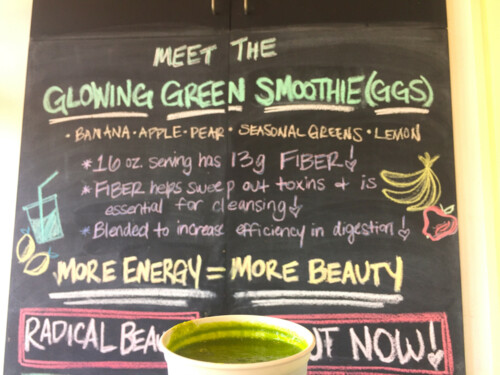 MEET THE
GLOWING GREEN SMOOTHIE (GGS)
• BANANA • APPLE • PEAR • SEASONAL GREENS • LEMON
*16 oz. serving has 13g FIBER!
*FIBER helps sweep out toxins + is
essential for cleansing!
*Blended to increase efficiency in digestion!
MORE ENERGY = MORE BEAUTY
RADICAL NOW!